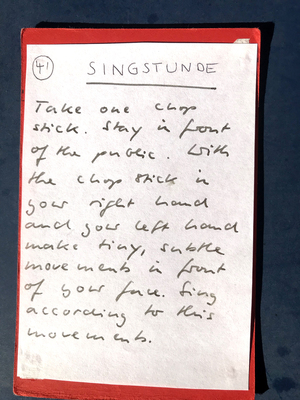 41
SINGSTUNDE
Take one chop
stick. Stay in front
of the public. With
the chop stick in
your right hand
and your left hand
make tiny, subtle
movements in front
of your face. Sing
according to this
movements.